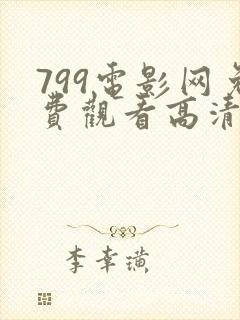 799電影网免
費觀看高清
李幸璜